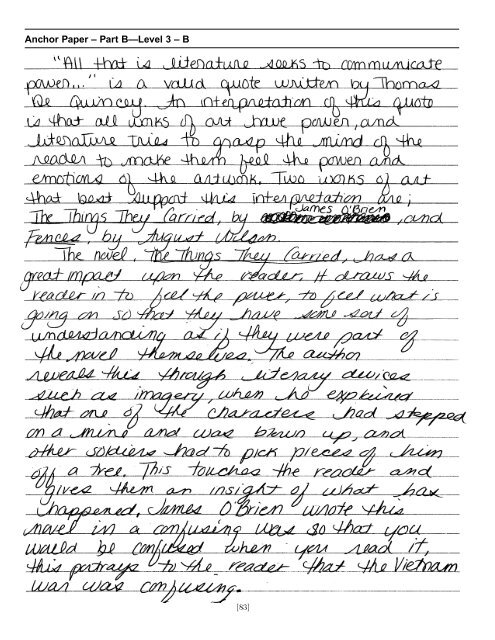 Anchor Paper – Part B—Level 3 – B
"All that is literature seeks to communicate
power..." is a valid quote written by Thomas
De Quincey. An interpretation of this quote
is that all works of art have power, and
literature tries to grasp the mind of the
reader to make them feel the power and
emotions of the artwork. Two works of art
that best support this interpretation are;
The Things They Carried, by James O'Brien, and
Fences, by August Wilson.
The novel, The Things They Carried, has a
great impact upon the reader. It draws the
reader in to feel the power, to feel what is
going on so that they have some sort of
understanding as if they were part of
the novel themselves. The author
reveals this through literary devices
such as imagery, when he explained
that one of the characters had stepped
on a mine and was blown up, and
other soldiers had to pick pieces of him
off a tree. This touches the reader and
gives them an insight of what has
happened, James O'Brien wrote this
novel in a confusing way so that you
would be confused when you read it,
this portrays to the reader that the Vietnam
war was confusing.
[83]